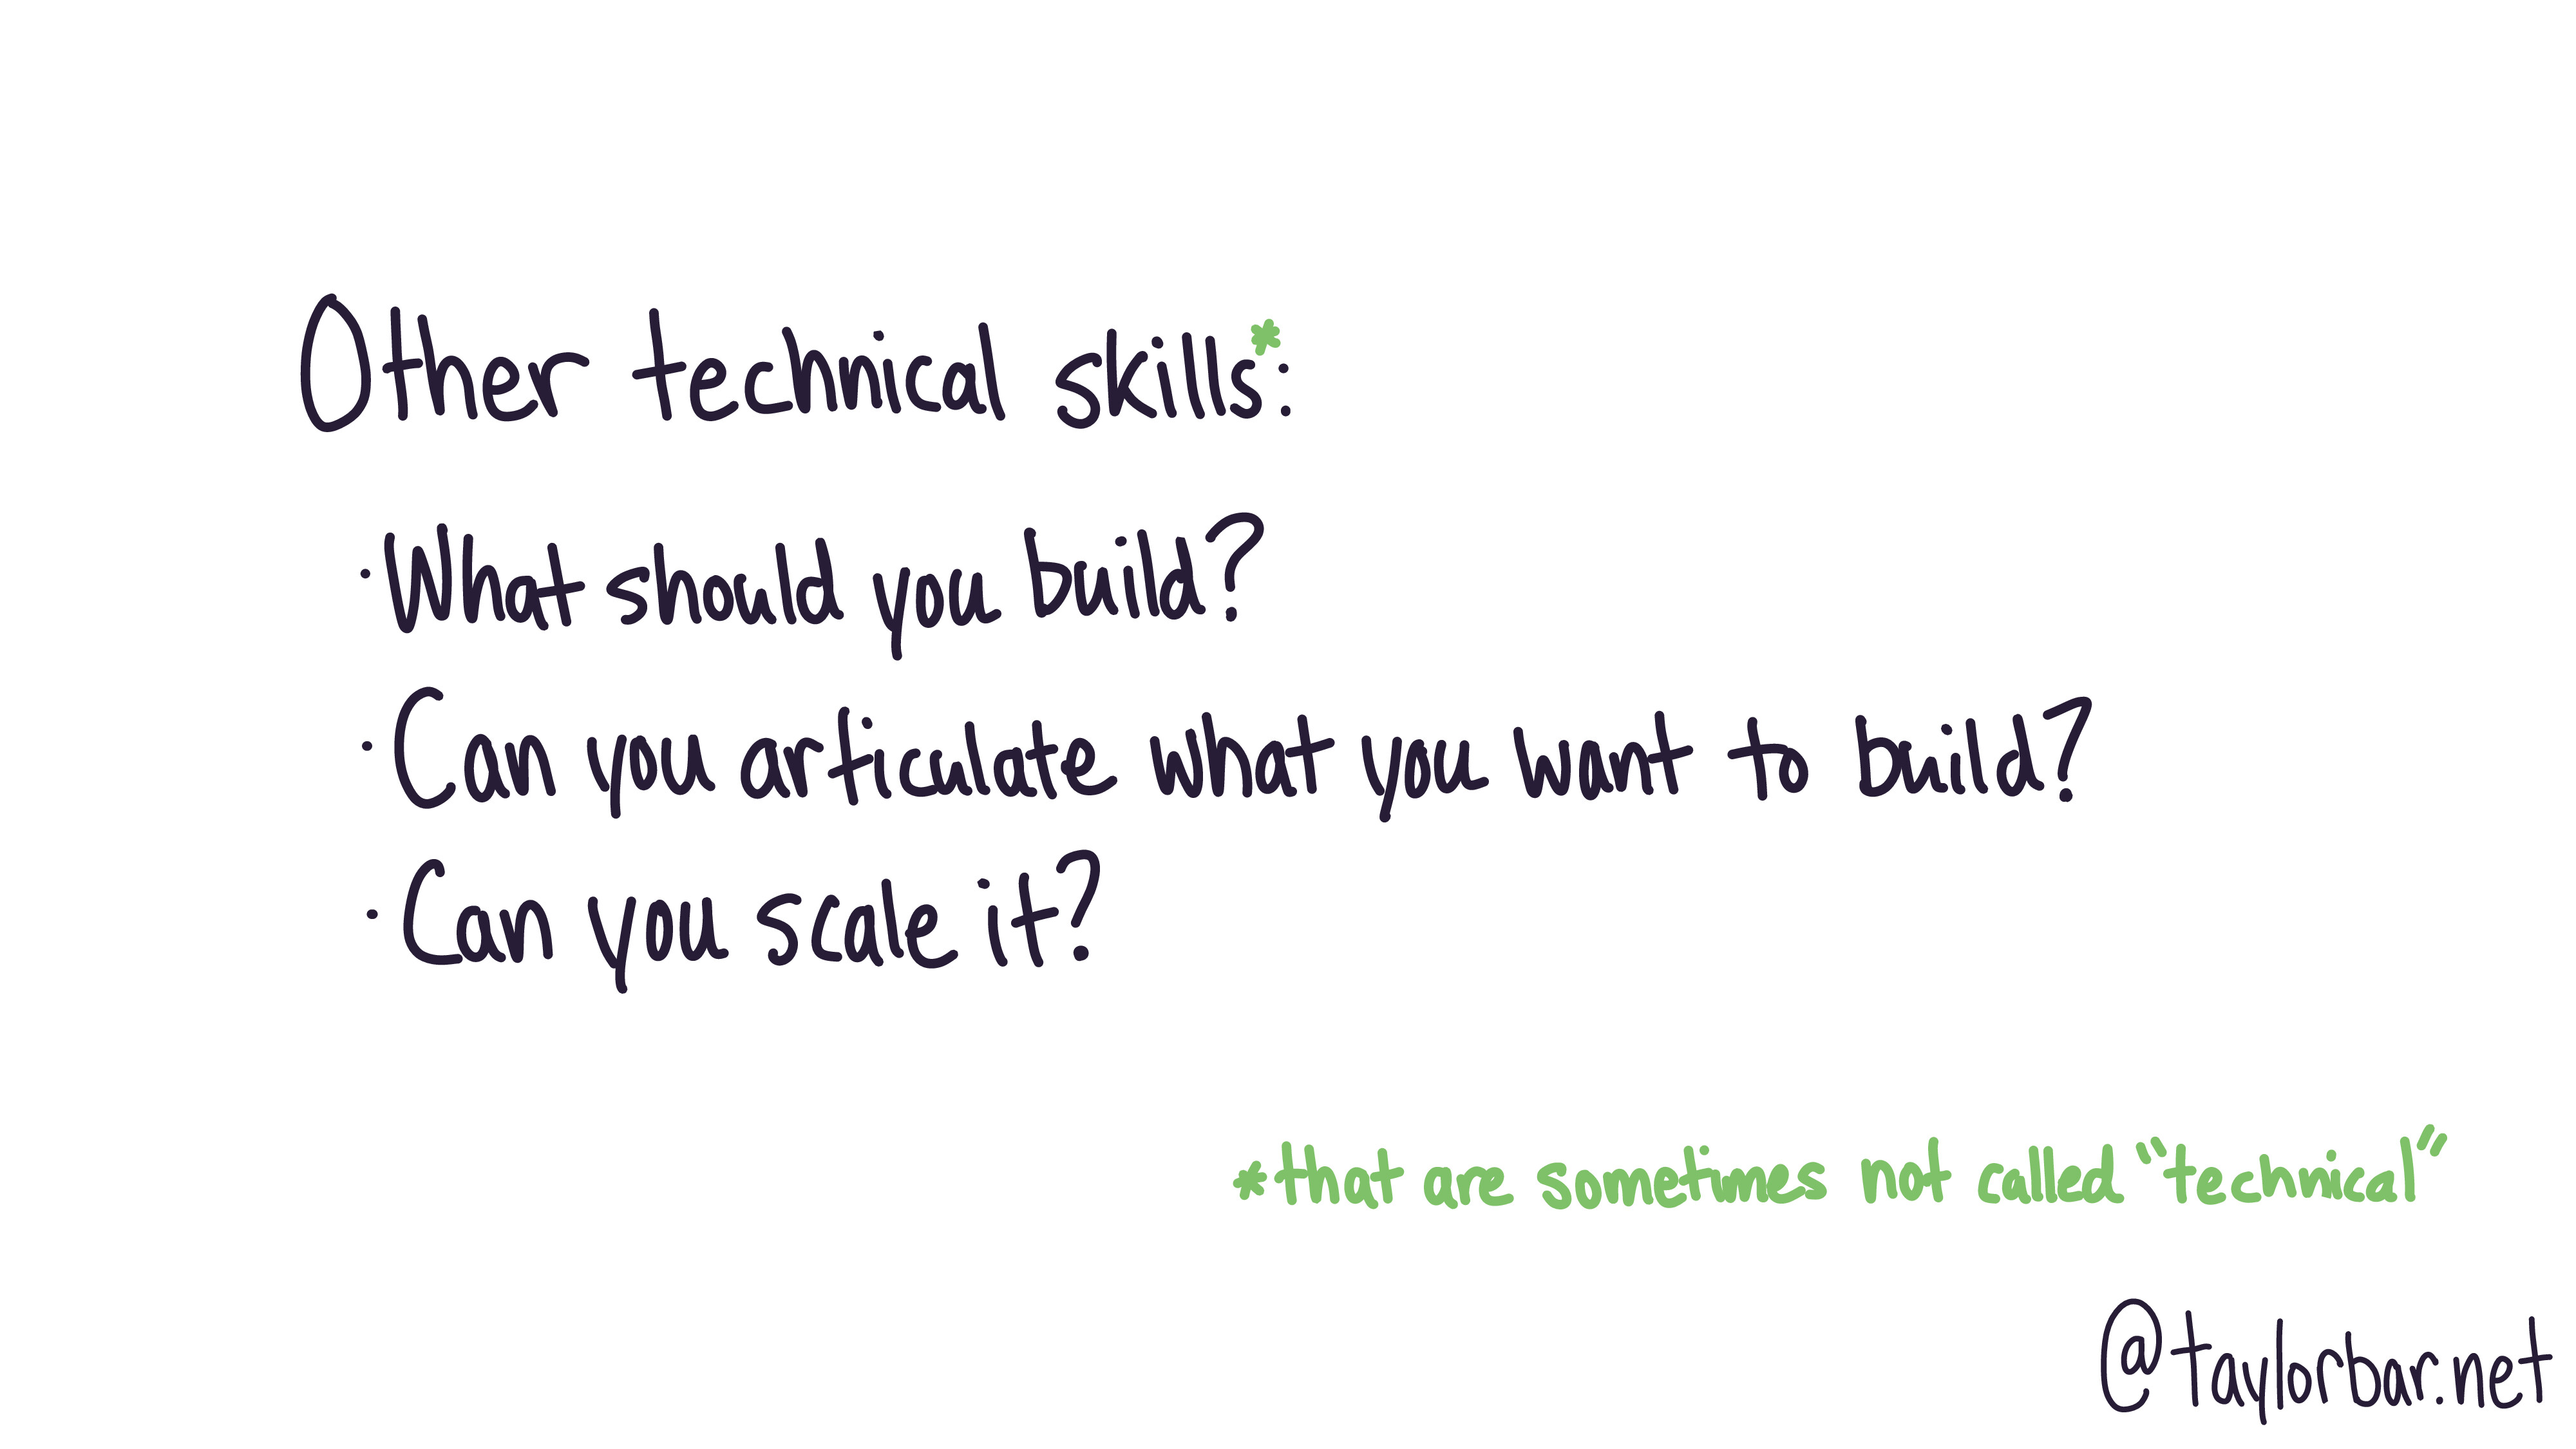 Other technical skills*:
·What should you build?
·Can you articulate what you want to build?
·Can you scale it?
*that are sometimes not called "technical"
@taylorbar.net